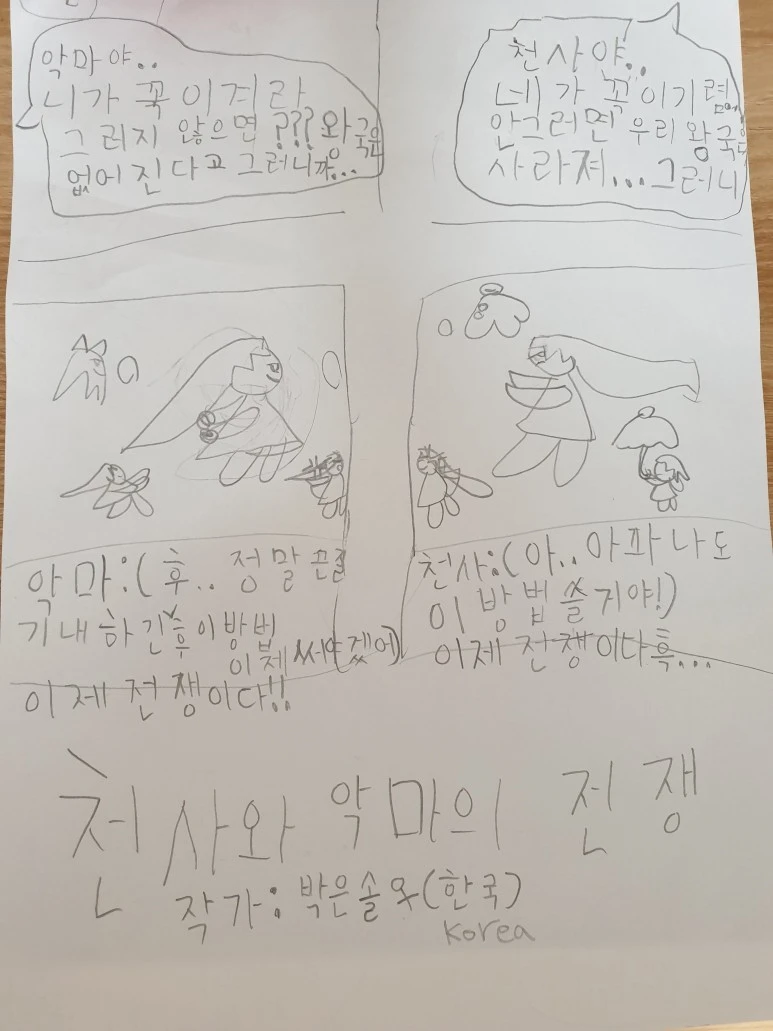 악마야..
니가 꼭 이겨라
그러지 않으면 ??? 왕국은
없어진다고 그러니까...
천사야..
네가 꼭 이기렴
안그러면 우리 왕국도
사라져...그러니
악마:(후.. 정말 끈질
기내 하긴 후 이 방법
이제 써야겠어)
이제 전쟁이다!!
천사:(아.. 아파 나도
이 방법 쓸 거야!)
이제 전쟁이다 흑...
천사와 악마의 전쟁
작가: 박은솔 (한국)
Korea